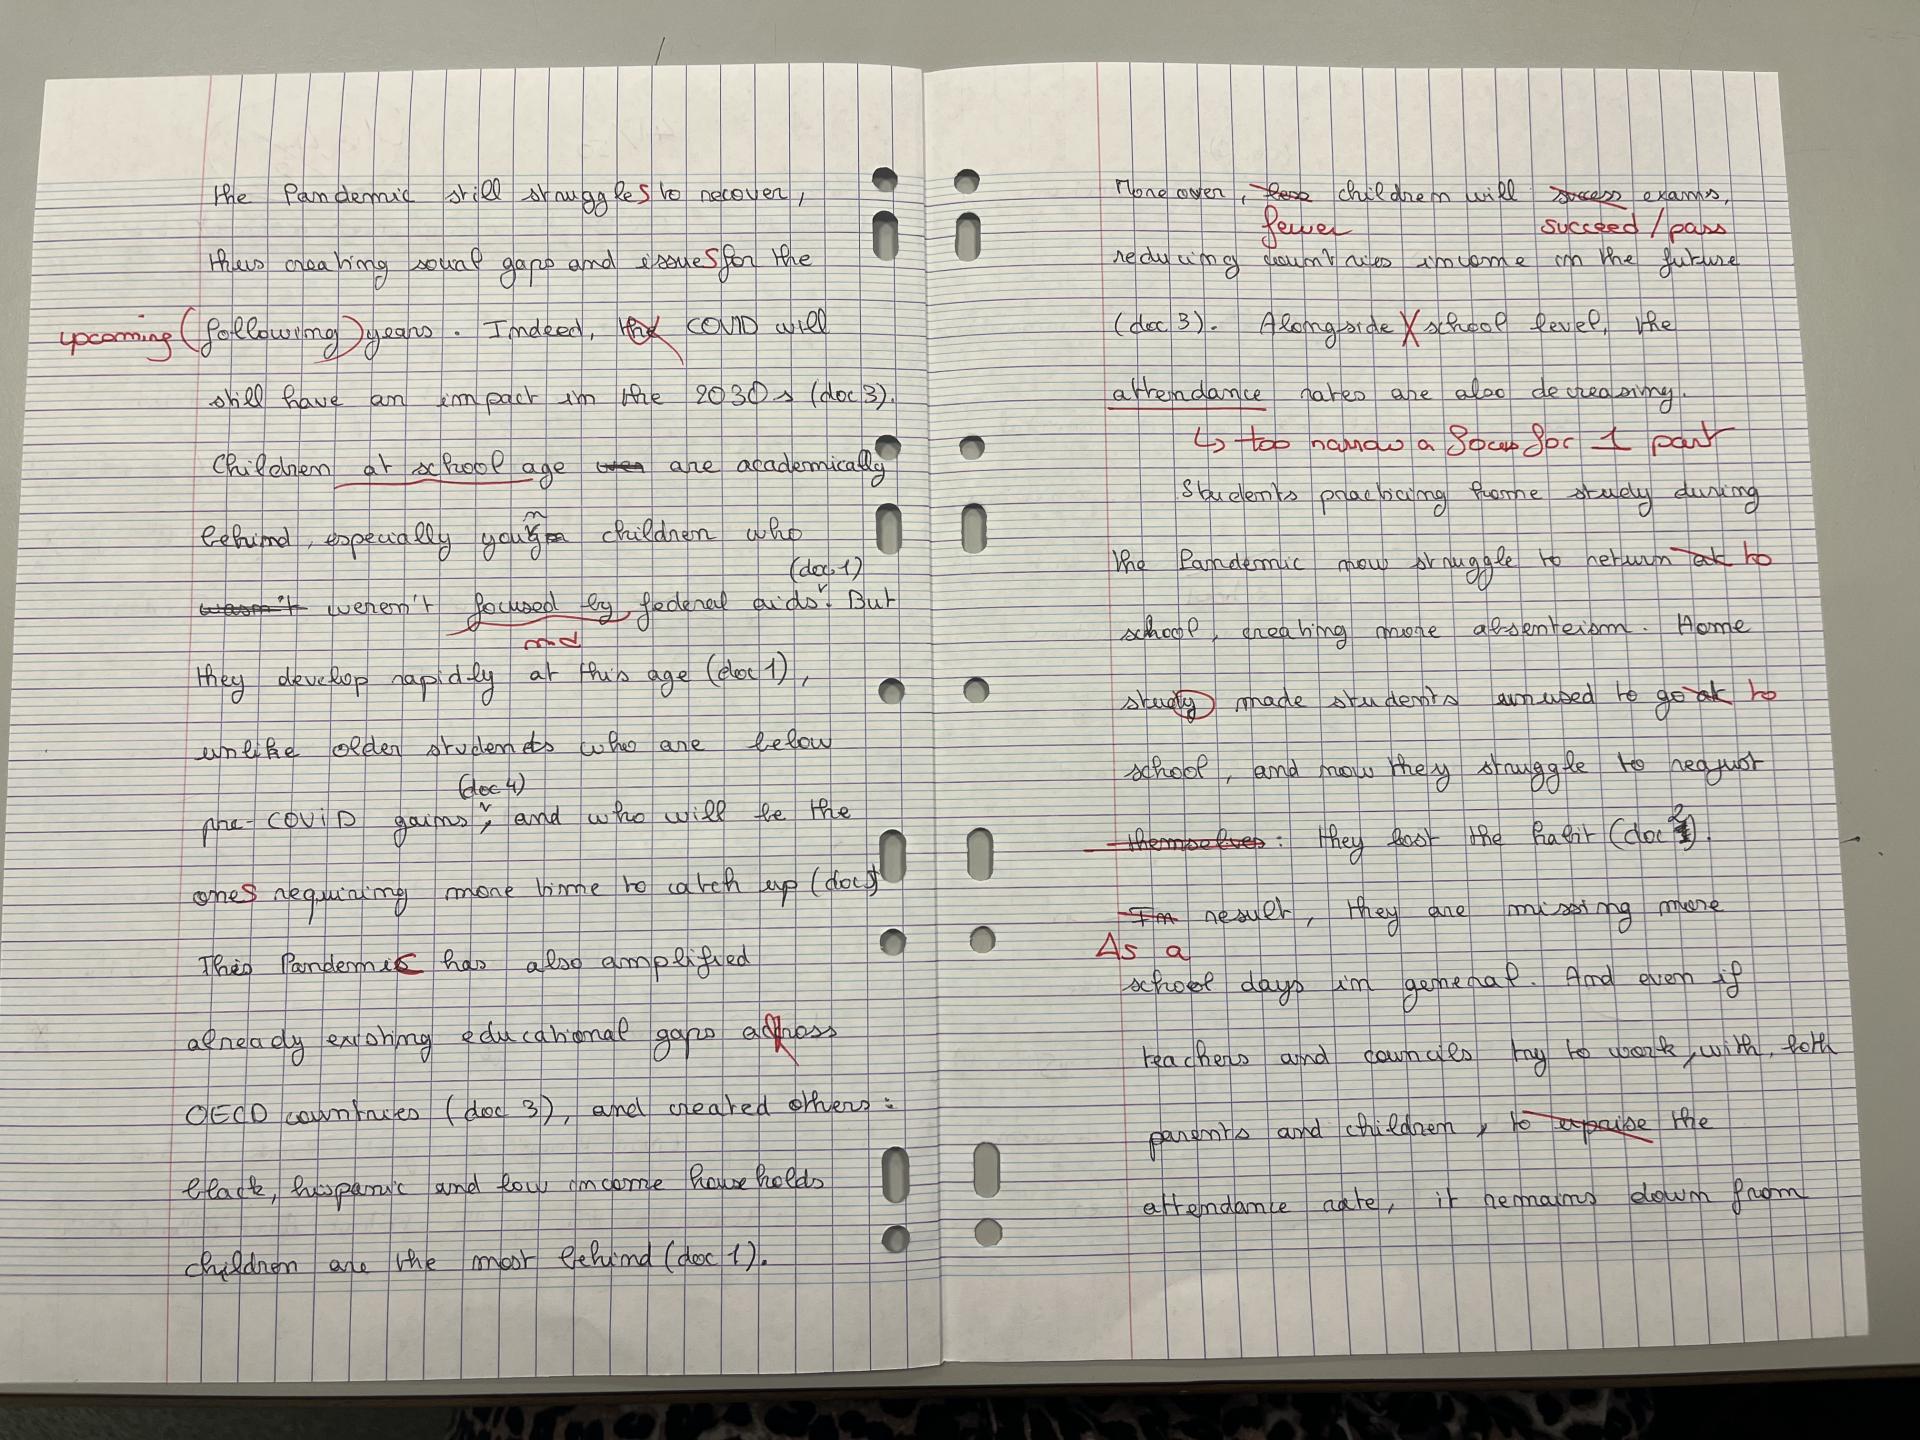 the Pandemic still struggles to recover,
thus creating social gaps and issues for the
upcoming (following) years. Indeed, the COVID will
still have an impact in the 2030s (doc 3).
Children at school age are academically
n
behind, especially young children who
(doc 1)
wasn't weren't focused by federal aids. But
md
they develop rapidly at this age (doc 1),
unlike older students who are below
(doc 4)
pre-COVID gains, and who will be the
ones requiring more time to catch up (doc
This Pandemic has also amplified
already existing educational gaps across
OECD countries (doc 3), and created others:
black, hispanic and low income households
children are the most behind (doc 1).
Moreover, less children will success exams,
fewer succeed / pass
reducing countries income in the future
(doc 3). Alongside school level, the
attendance rates are also decreasing.
↳ too narrow a focus for 1 part
Students practicing home study during
the Pandemic now struggle to return at to
school, creating more absenteism. Home
study made students unused to go at to
school, and now they struggle to readjust
themselves: they lost the habit (doc 2).
In result, they are missing more
As a
school days in general. And even if
teachers and councils try to work, with, both
parents and children, to exprise the
attendance rate, it remains down from